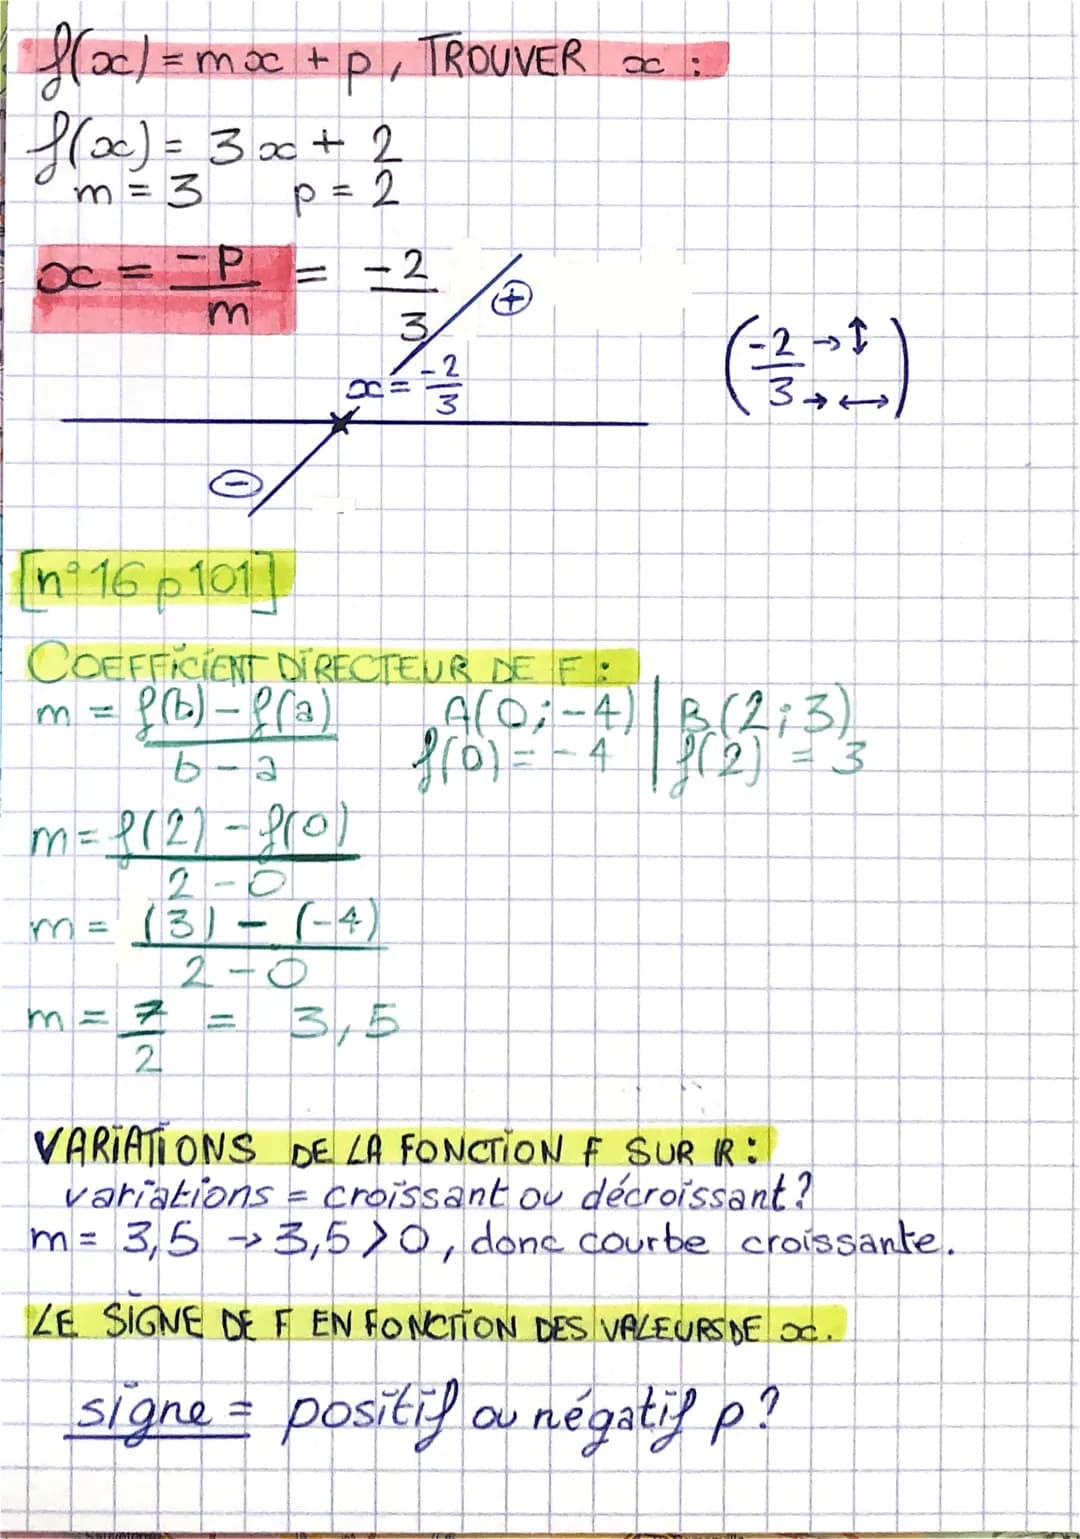 f(x) = mx + p, TROUVER x :
f(x) = 3x + 2
m = 3 p = 2
x = -p/m = -2/3
⊕
x = -2/3
(-2/3 → ↕ → ↔)
⊖
[n°16 p101]
COEFFICIENT DIRECTEUR DE F :
m = f(b) - f(a) / b - a
A(0;-4) | B(2;3)
f(0) = -4 | f(2) = 3
m = f(2) - f(0) / 2 - 0
m = (3) - (-4) / 2 - 0
m = 7/2 = 3,5
VARIATIONS DE LA FONCTION F SUR IR :
variations = croissant ou décroissant ?
m = 3,5 → 3,5 > 0, donc courbe croissante.
LE SIGNE DE F EN FONCTION DES VALEURS DE x.
signe = positif ou négatif p ?